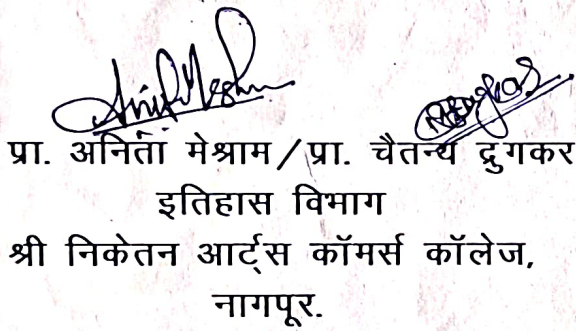 प्रा. अनिता मेश्राम / प्रा. चैतन्य द्रुगकर
इतिहास विभाग
श्री निकेतन आर्ट्स कॉमर्स कॉलेज,
नागपूर.